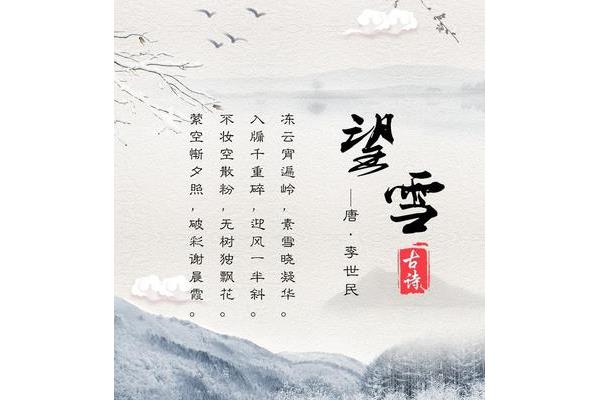 望雪
——唐·李世民
古诗
冻云宵遍岭，素雪晓凝华。
入牖千重碎，迎风一半斜。
不妆空散粉，无树独飘花。
萦空惭夕照，破彩谢晨霞。